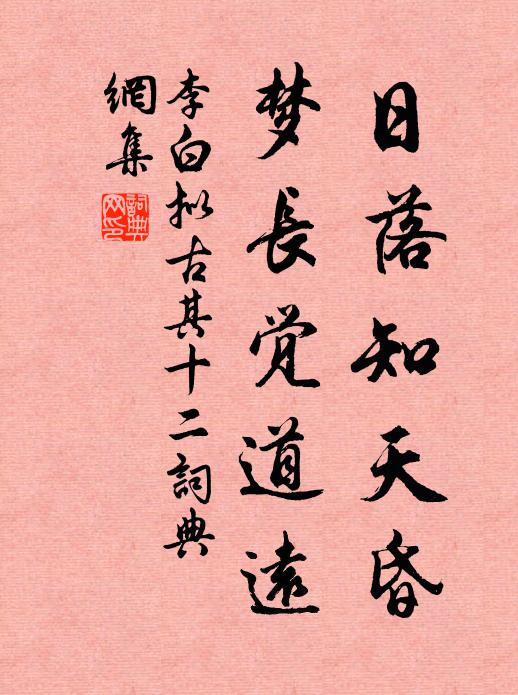 日落知天昏
梦長觉道遠
李白拟古其十二詞典
網集
詞典
网印